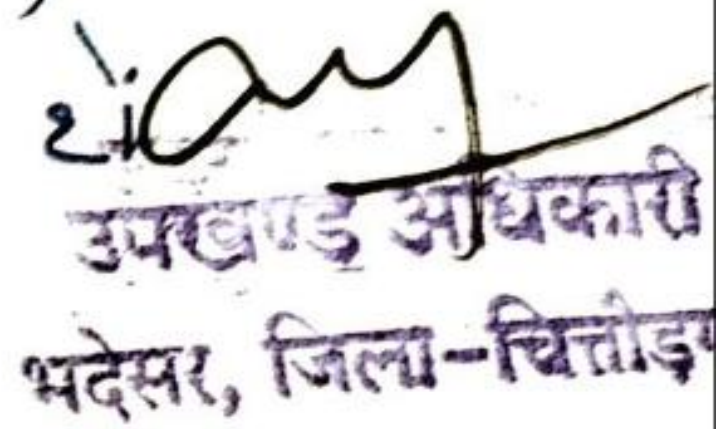 उपखण्ड अधिकारी
भदेसर, जिला-चित्तौड़